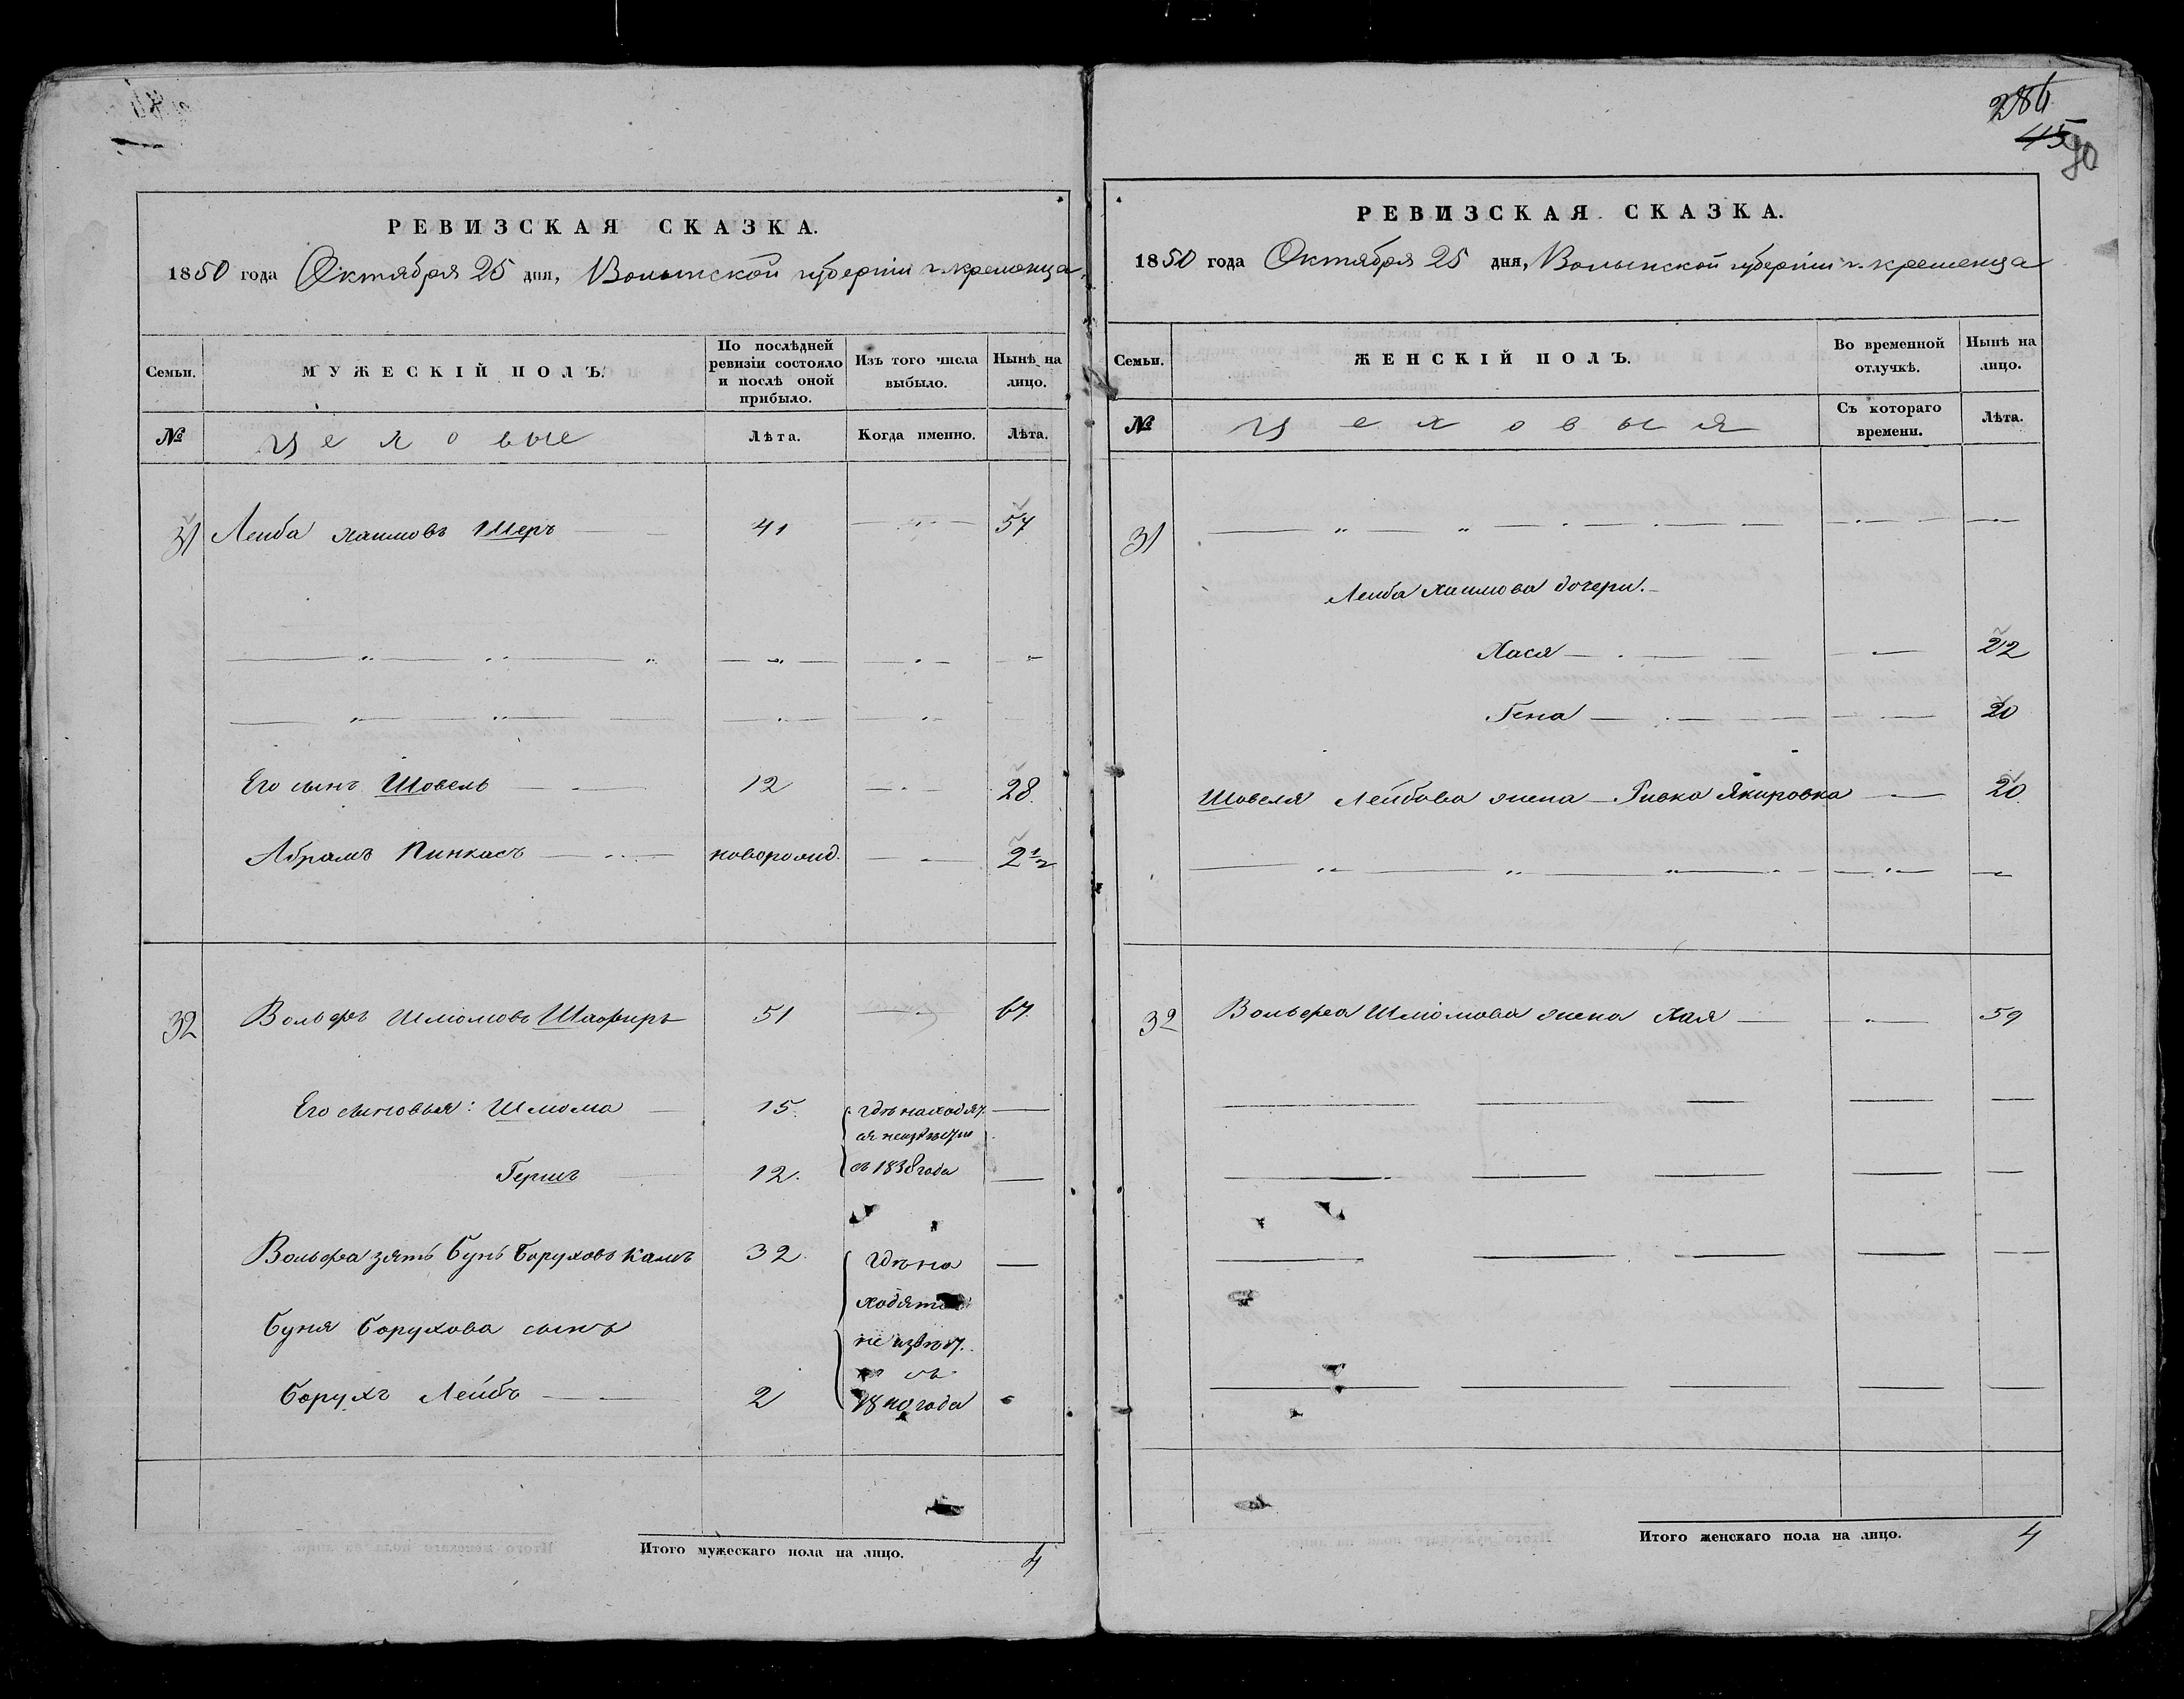 РЕВИЗСКАЯ СКАЗКА.
1850 года Октября 25 дня, Волынской губернiи г. кременца
Семьи.
МУЖЕСКIЙ ПОЛЪ.
По послѣдней ревизiи состояло и послѣ оной прибыло.
Изъ того числа выбыло.
Нынѣ на лицо.
№
Цеховые
Лѣта.
Когда именно.
Лѣта.
31 Лейба Хаимовъ Шеръ 41 57
Его сынъ Шовель 12 28
Абрамъ Пинкасъ новорожд. 2 1/2
32 Вольфъ Шлiомовъ Шафиръ 51 67
Его сыновья: Шлiома 15. гдѣ находят.
ся неизвѣстно
Гершъ 12. съ 1838 года
Вольфа зять Бунь Боруховъ Кацъ 32. гдѣ на
ходятся
Буня Борухова сынъ
не извѣст.
но съ
Борухъ Лейбъ 2 1840 года
Итого мужескаго пола на лицо. 4
284
45
90
РЕВИЗСКАЯ СКАЗКА.
1850 года Октября 25 дня, Волынской губернiи г. кременца
Семьи.
ЖЕНСКIЙ ПОЛЪ.
Во временной отлучкѣ.
Нынѣ на лицо.
№
Цеховыя
Съ котораго времени.
Лѣта.
31
Лейба Хаимова дочери.
Хася 22
Гена 20
Шовеля Лейбова жена Ривка Якировна 20
32 Вольфа Шлiомова жена Хая 59
Итого женскаго пола на лицо. 4